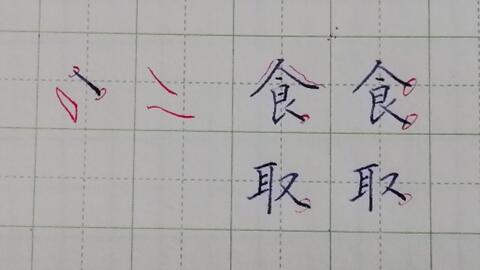 食 食
取 取